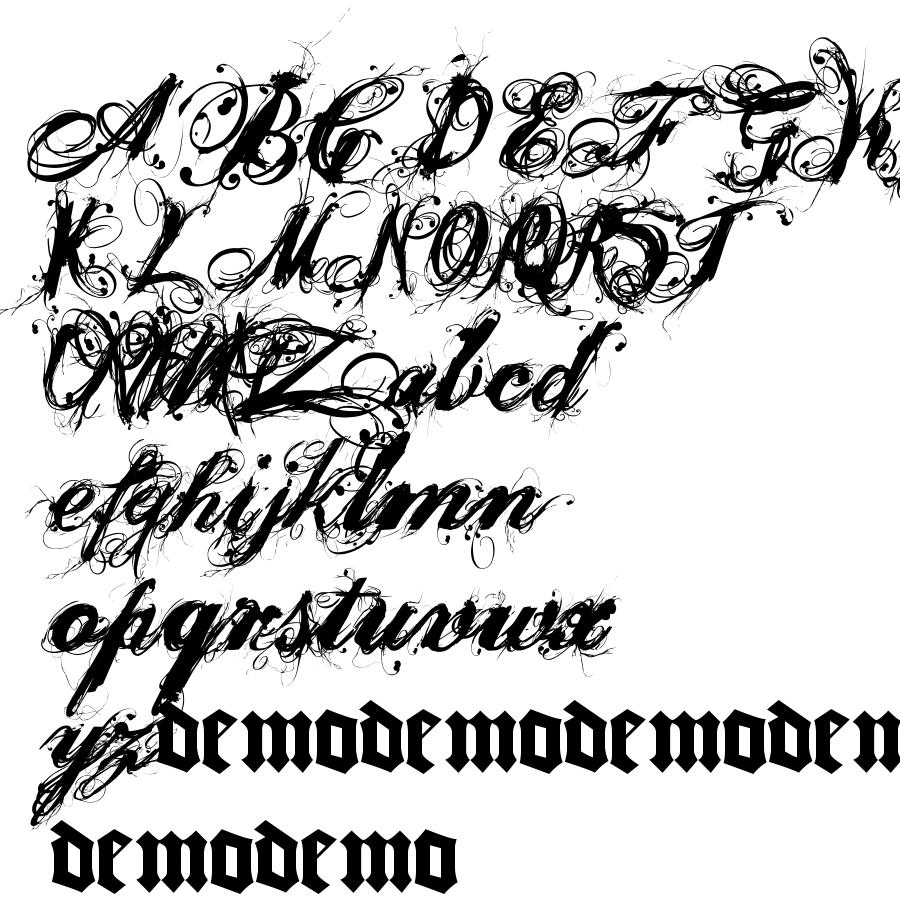 A B C D E F G H
K L M N O P Q R S T
U V W X Y Z a b c d
e f g h i j k l m n
o p q r s t u v w x
y z demodemodemodem
demodemo